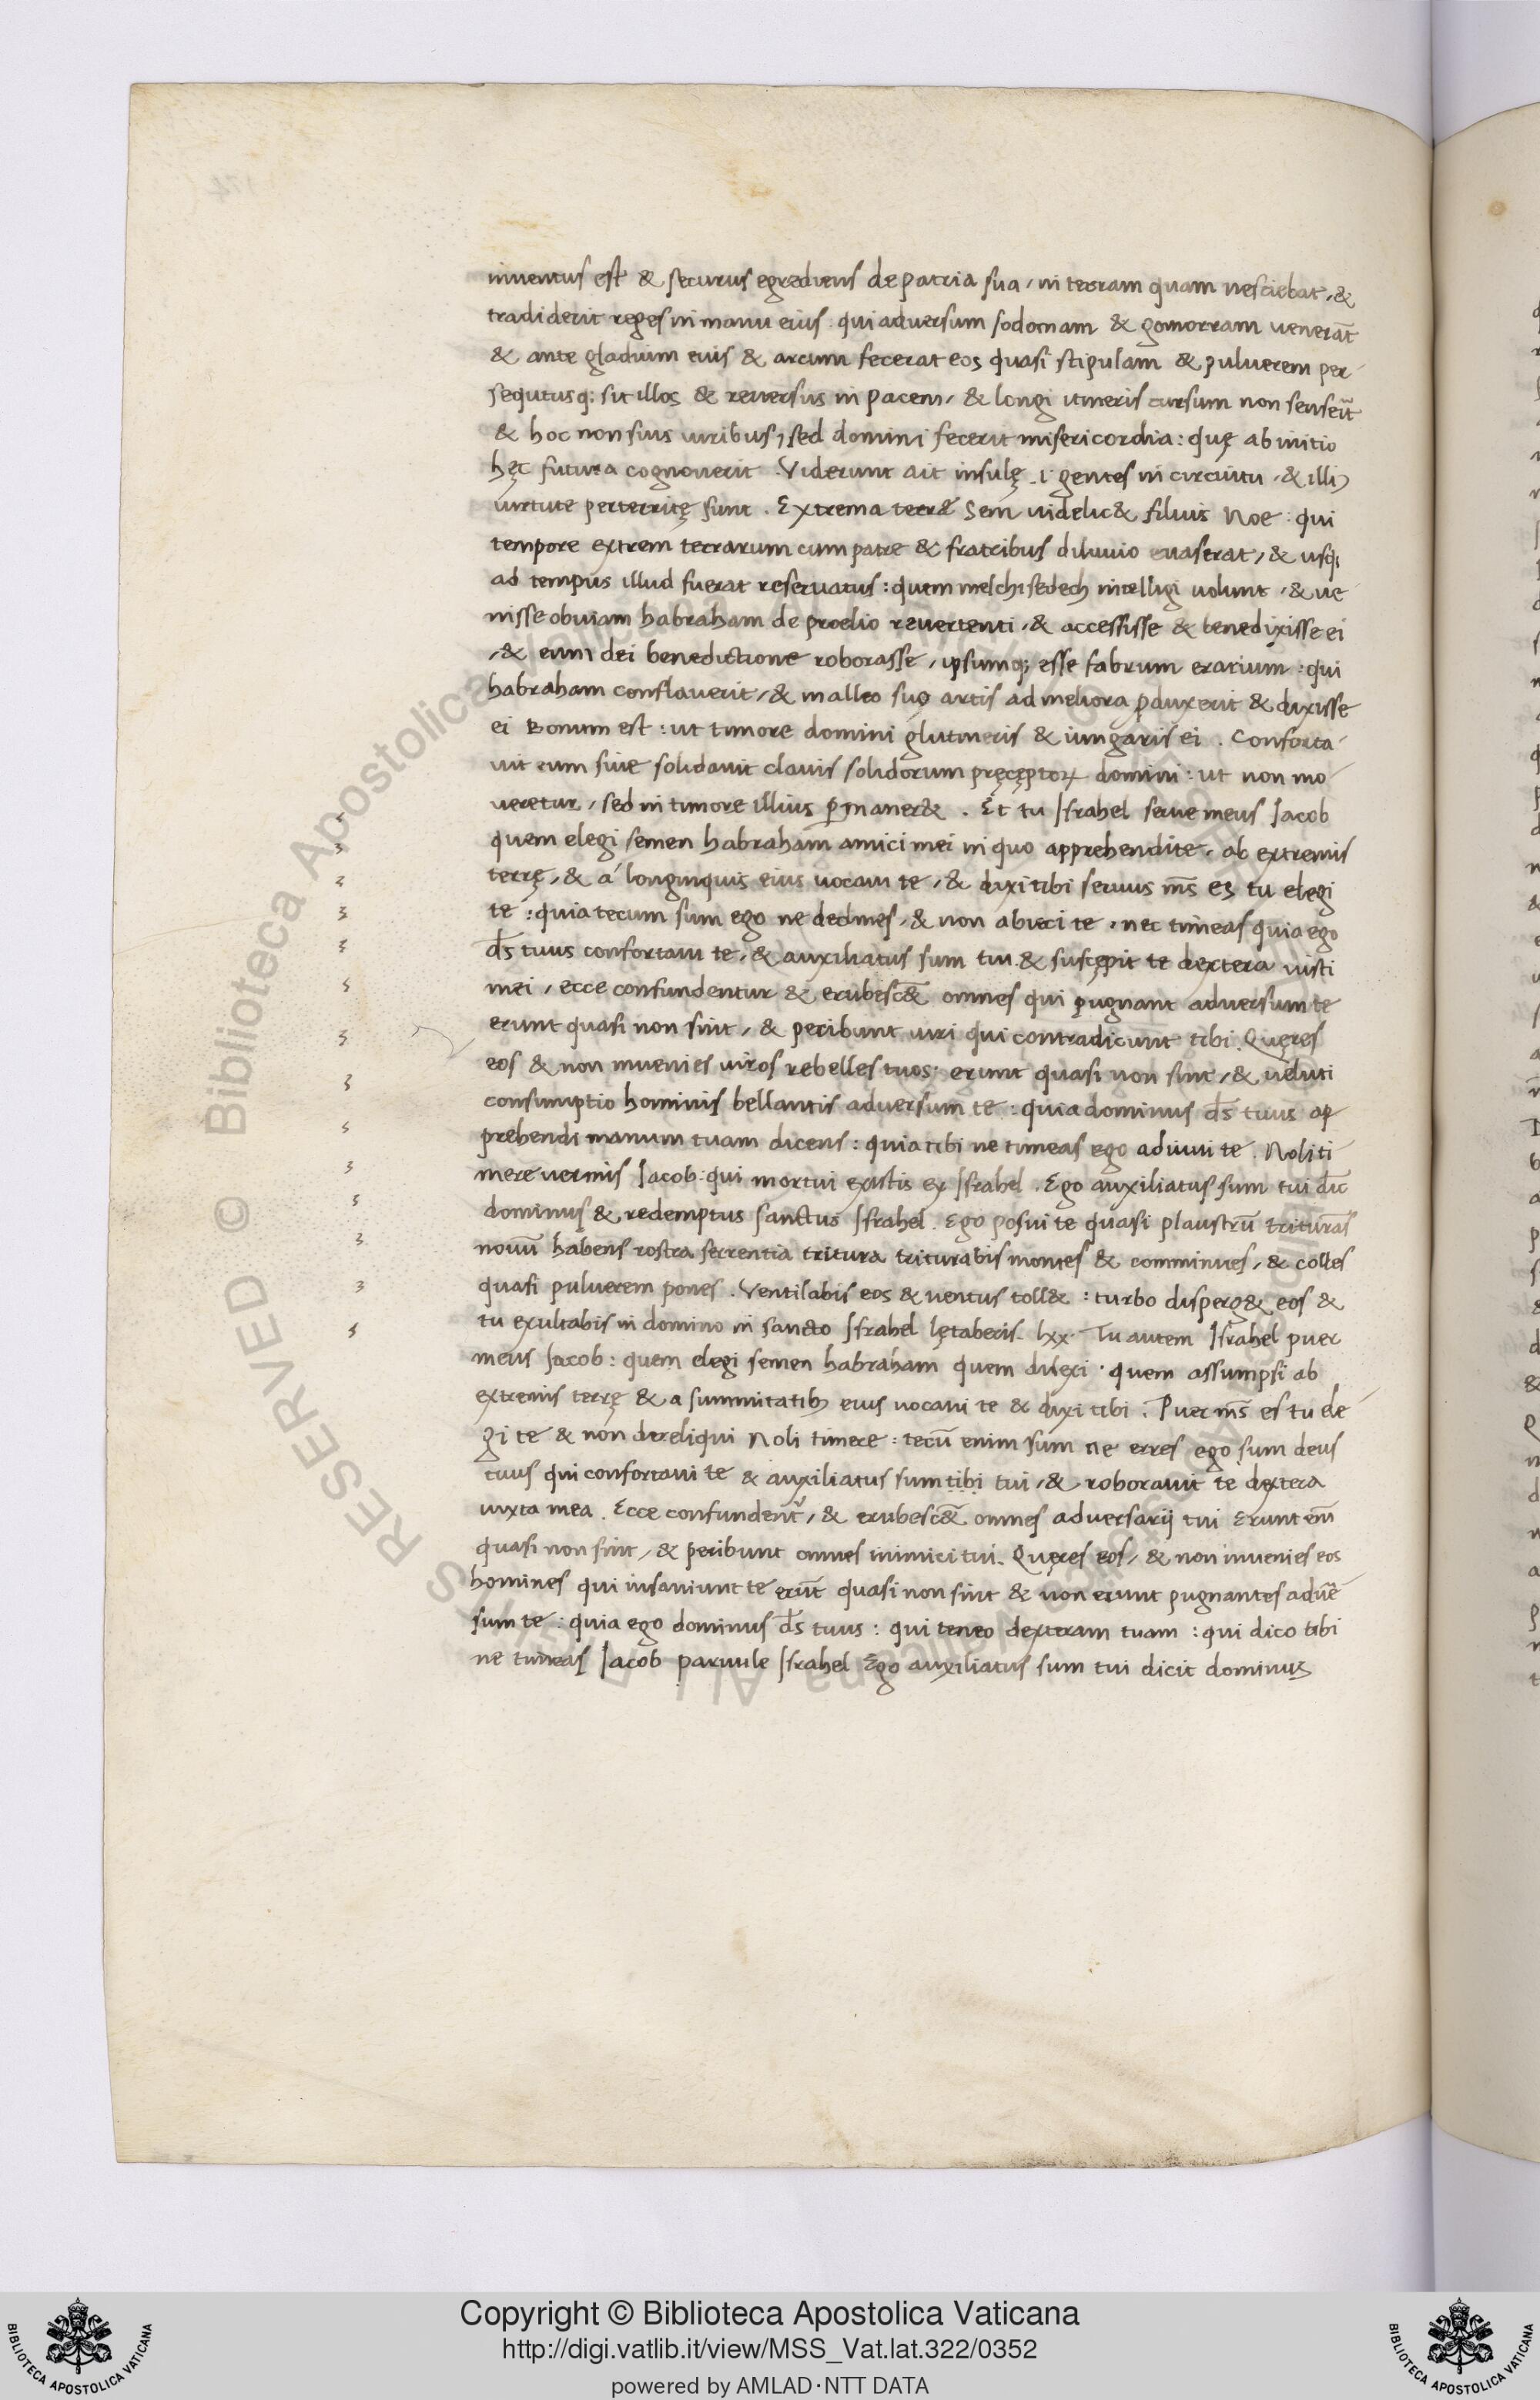 inuentus est & securus egrediens de patria sua, in terram quam nesciebat, &
tradiderit reges in manu eius: qui aduersum sodomam & gomorram uenerāt
& ante gladium eius & arcum fecerat eos quasi stipulam & puluerem per
sequtusq; sit illos & reuersus in pacem, & longi itineris cursum non senseīt
& hoc non suis uiribus, sed domini fecerit misericordia: quę ab initio
hęc futura cognouerit. Viderunt ait insulę .i. gentes in circuitu, & illiꝰ
uirtute perterritę sunt. Extrema terræ Sem uidelic& filius Noe: qui
tempore extrem terrarum cum patre & fratribus diluuio euaserat, & usq;
ad tempus illud fuerat reseruatus: quem melchisedech intelligi uolunt, & ue
nisse obuiam habraham de proelio reuertenti, & accessisse & benedixisse ei
, & eum dei benedictione roborasse, ipsumq; esse fabrum erarium: qui
habraham conflauerit, & malleo suo artis ad meliora ꝓduxerit & dixisse
ei Bonum est: ut timore domini glutineris & iungaris ei. Conforta
uit eum siue solidauit clauis solidorum pręcęptoꝝ domini: ut non mo
ueretur, sed in timore illius ꝑmaner&. Et tu Israhel serue meus Jacob
quem elegi semen habraham amici mei in quo apprehendi te, ab extremis
terrę, & á longinquis eius uocaui te, & dixi tibi seruus m̄s es tu elegi
te: quia tecum sum ego ne declines, & non abieci te, nec timeas quia ego
d̄s tuus confortaui te, & auxiliatus sum tui & suscępit te dextera iusti
mei, ecce confundentur & erubesc̄& omnes qui pugnant aduersum te
erunt quasi non sint, & peribunt uiri qui contradicunt tibi. Quęres
eos & non inuenies uiros rebelles tuos. erunt quasi non sint, & ueluti
consumptio hominis bellantis aduersum te: quia dominus d̄s tuus ap
prehendi manum tuam dicens: quia tibi ne timeas ego adiuui te. Noli ti
mere uermis Jacob: qui mortui existis ex Israhel. Ego auxiliatus sum tui dic̄
dominus & redemptus sanctus Israhel. Ego posui te quasi plaustrū triturās
nouū habens rostra serrentia tritura triturabis montes & comminues, & colles
quasi puluerem pones. Ventilabis eos & uentus toll&: turbo disperg& eos &
tu exultabis in domino in sancto Israhel lętaberis. lxx. Tu autem Israhel puer
meus Jacob: quem elegi semen habraham quem dilexi. quem assumpsi ab
extremis terrę & a summitatibꝰ eius uocaui te & dixi tibi. Puer m̄s es tu ele
gi te & non dereliqui Noli timere: tecū enim sum ne erres ego sum deus
tuus qui confortaui te & auxiliatus sum tibi tui, & roborauit te dextera
iuxta mea. Ecce confundent̄, & erubesc̄& omnes aduersarij tui Erunt em̄
quasi non sint, & peribunt omnes inimici tui. Quęres eos, & non inuenies eos
homines qui insaniunt te erūt quasi non sint & non erunt pugnantes aduē
sum te: quia ego dominus d̄s tuus: qui teneo dexteram tuam: qui dico tibi
ne timeas Jacob paruule Israhel Ego auxiliatus sum tui dicit dominus
Copyright © Biblioteca Apostolica Vaticana
http://digi.vatlib.it/view/MSS_Vat.lat.322/0352
powered by AMLAD·NTT DATA